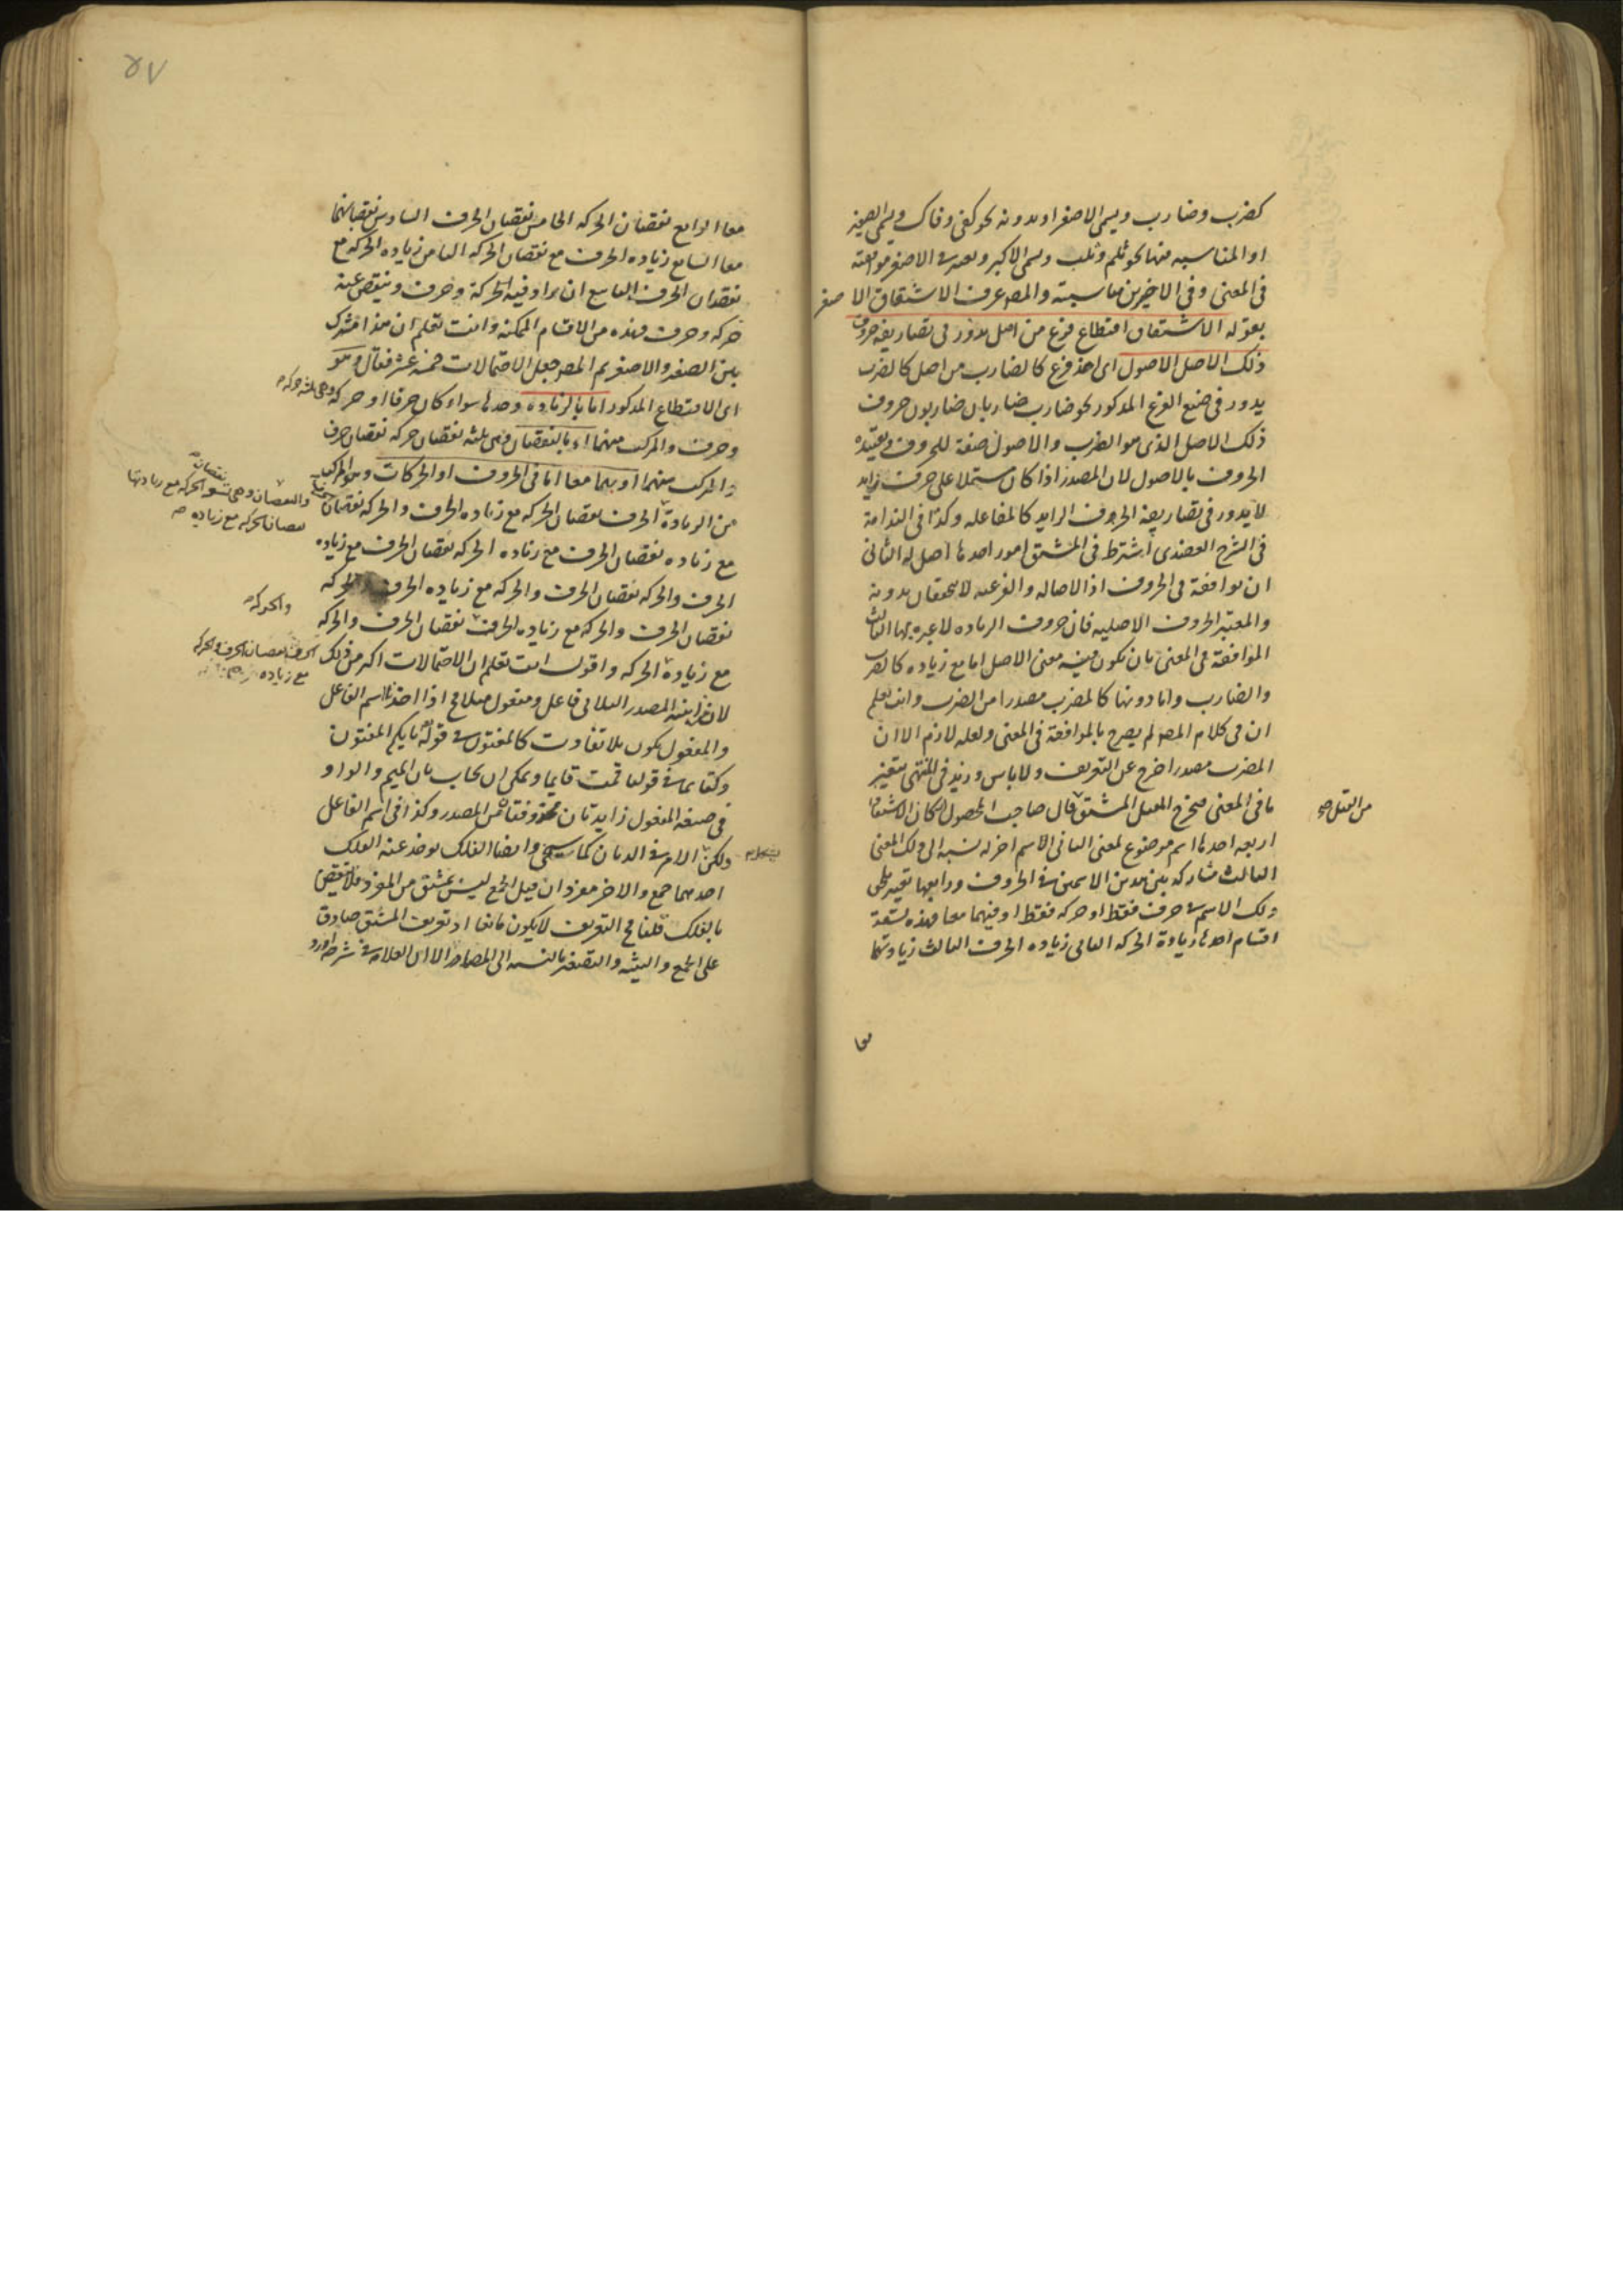 كضرب وضارب ويسمى الاصغر او بدونه نحو كنى وناك ويسمى الصغير
او المناسبه فيها نحو ثلم وثلب ويسمى الاكبر ويعتبر في الاصغر موافقته
في المعنى وفي الاخيرين مناسبته والمصـ عرف الاشتقاق الاصغر
بقوله الاشتقاق اقتطاع فرع من اصل يدور في تصاريفه حروف
ذلك الاصل الاصول اى اخذ فرع كالضارب من اصل كالضرب
يدور في صيغ الفرع المذكور نحو ضارب ضاربان ضاربون حروف
ذلك الاصل الذى هو الضرب والاصول صفة للحروف وتقييده
الحروف بالاصول لان المصدر اذا كان مشتملا على حرف زايد
لا يدور في تصاريفه الحروف الزايد كالمفاعله وكذا في الندامة
في الشرح العضدى اشترط في المشتق امور احدها اصل له الثانى
ان يوافقه في الحروف اذ الاصاله والفرعيه لا يتحققان بدونه
والمعتبر الحروف الاصليه فان حروف الزياده لا عبره بها الثالث
الموافقة في المعنى بان يكون فيه معنى الاصل اما مع زياده كالضرب
والضارب واما دونها كالمضرب مصدرا من الضرب وانت تعلم
ان في كلام المصـ لم يصرح بالموافقة في المعنى ولعله لازم الا ان
المضرب مصدرا خرج عن التعريف ولا باس وزيد في المنتهى بتغيير
ما في المعنى فيخرج المقتل المشتق قال صاحب المحصول اركان الاشتقاق
من القتل صح
اربعه احدها اسم موضوع لمعنى الثانى الاسم اخر له نسبه الى ذلك المعنى
الثالث مشاركه بين هذين الاسمين في الحروف ورابعها تغيير يلحق
ذلك الاسم في حرف فقط او حركه فقط او فيهما معا فهذه تسعة
اقسام احدها زيادة الحركه الثانى زياده الحرف الثالث زيادتهما
معا
٥٧
معا الرابع نقصان الحركه الخامس نقصان الحرف السادس نقصانهما
معا السابع زياده الحرف مع نقصان الحركه الثامن زياده الحركه مع
نقصان الحرف التاسع ان يزاد فيه الحركة وحرف وينقص عنه
حركه وحرف فهذه من الاقسام الممكنه وانت تعلم ان هذا مشترك
بين الصغير والاصغر ثم المصـ جعل الاحتمالات خمسه عشر فقال وهو
اى الاقتطاع المذكور اما بالزيادة وحدها سواء كان حرفا او حركه
وهى ثلثه حركه
وحرف والمركب منهما او بالنقصان وهى ثلثه نقصان حركه نقصان حرف
والمركب منهما او بهما معا اما في الحروف او الحركات وهو المركب
من الزيادة الحرف نقصان الحركه مع زياده الحرف والحركه نقصان
والنقصان وهى تسع نقصان الحركه مع زيادتها
نقصان الحركه مع زياده
مع زياده نقصان الحرف مع زياده الحركه نقصان الحرف مع زياده
الحرف والحركه نقصان الحرف والحركه مع زياده الحرف والحركه
والحركه
نقصان الحرف والحركه مع زياده الحرف نقصان الحرف والحركه
مع زيادة الحركه واقول انت تعلم ان الاحتمالات اكثر من ذلك
الحرف نقصان الحرف والحركه
مع زياده
لان ابنيه المصدر الثلاثى فاعل ومفعول مثلا فح اذا اخذنا اسم الفاعل
والمفعول يكون بلا تفاوت كالمفتون في قوله بايكم المفتون
وكقائما في قولنا قمت قايما ويمكن ان يجاب بان الميم والواو
في صيغه المفعول زايدتان محذوفتان من المصدر وكذا في اسم الفاعل
ولكن الامر في الدمان كما سيجى وايضا الفلك يوخذ عنه الفلك
احدهما جمع والاخر مفرد ان قيل الجمع ليس بمشتق من المفرد فلا نقيض
بالفلك قلنا فح التعريف لا يكون مانعا اذ تعريف المشتق صادق
على الجمع والتثنيه والتصغير بالنسبه الى المصادر الا ان العلامه في شرحه اورد